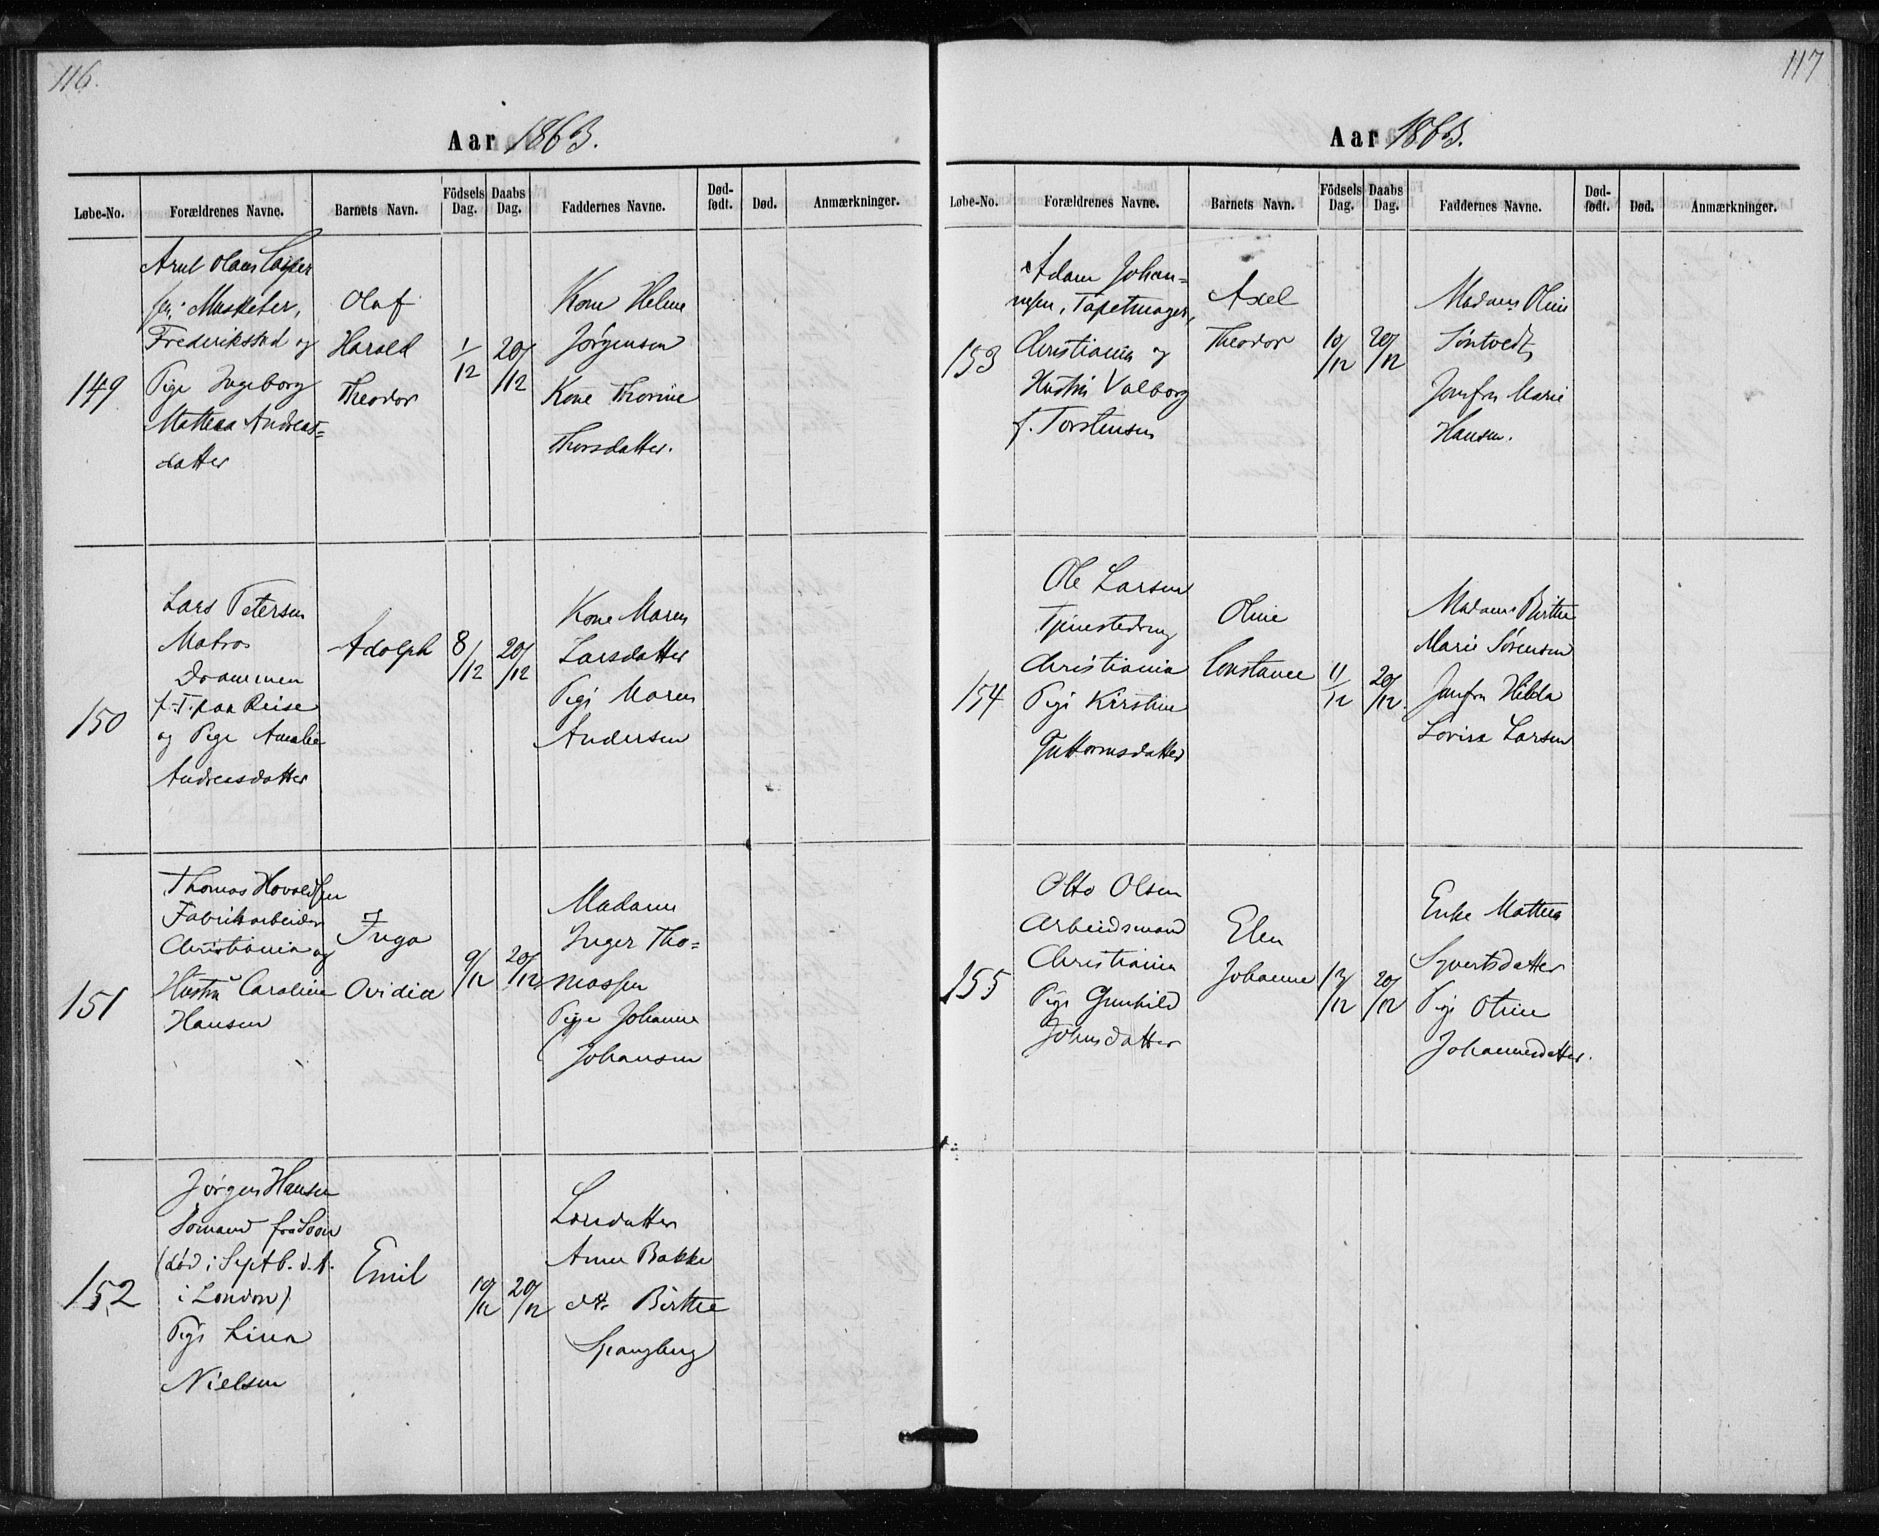 116.
Aar 1863.
Løbe-No.
Forældrenes Navne.
Barnets Navn.
Födsels Dag.
Daabs Dag.
Faddernes Navne.
Død-født.
Død.
Anmærkninger.
149
Arnt Olaus
Musketer,
Frederikstad og
Pige Ingeborg
Mathea Andreas=
datter
Olaf
Harald
Theodor
1/12
20/12
Kone Helene
Jørgensen
Kone Thorine
Thorsdatter.
150
Lars Petersen
Matros
Drammen
f. T. paa Reise
og Pige Amalie
Andreasdatter
Adolph
8/12
20/12
Kone Maren
Larsdatter
Pige Maren
Andersen
151
Thomas Hovaldsen
Fabrikarbeider
Christiania og
Hustru Caroline
Hansen
Inga
Ovidia
9/12
20/12
Madame
Inger Tho=
massen
Pige Johanne
Johansen
152
Jørgen Hansen
Sømand fra
(død i Septb. d. A.
i London)
Pige Lina
Nielsen
Emil
10/12
20/12
Anne Bakke
do Birthe
Spangberg
117
Aar 1863.
Løbe-No.
Forældrenes Navne.
Barnets Navn.
Födsels Dag.
Daabs Dag.
Faddernes Navne.
Død-født.
Død.
Anmærkninger.
153
Adam Johan=
nesen, Tapetmager,
Christiania og
Hustru Valborg
f. Torstensen
Axel
Theodor
10/12
20/12
Madam Oline
Søntvedt
Jomfru Marie
Hansen.
154
Ole Larsen
Tjenestedreng
Christiania
Pige Kirstine
Guttormsdatter
Oline
Constance
11/12
20/12.
Madame Birthe
Marie Sørensen
Jomfru Hilda
Lovise Larsen
155
Otto Olsen
Arbeidsmand
Christiania
Pige Gunhild
Johnsdatter
Elen
Johanne
13/12
20/12
Enke Mathea
Syvertsdatter
Pige Oline
Johannesdatter.